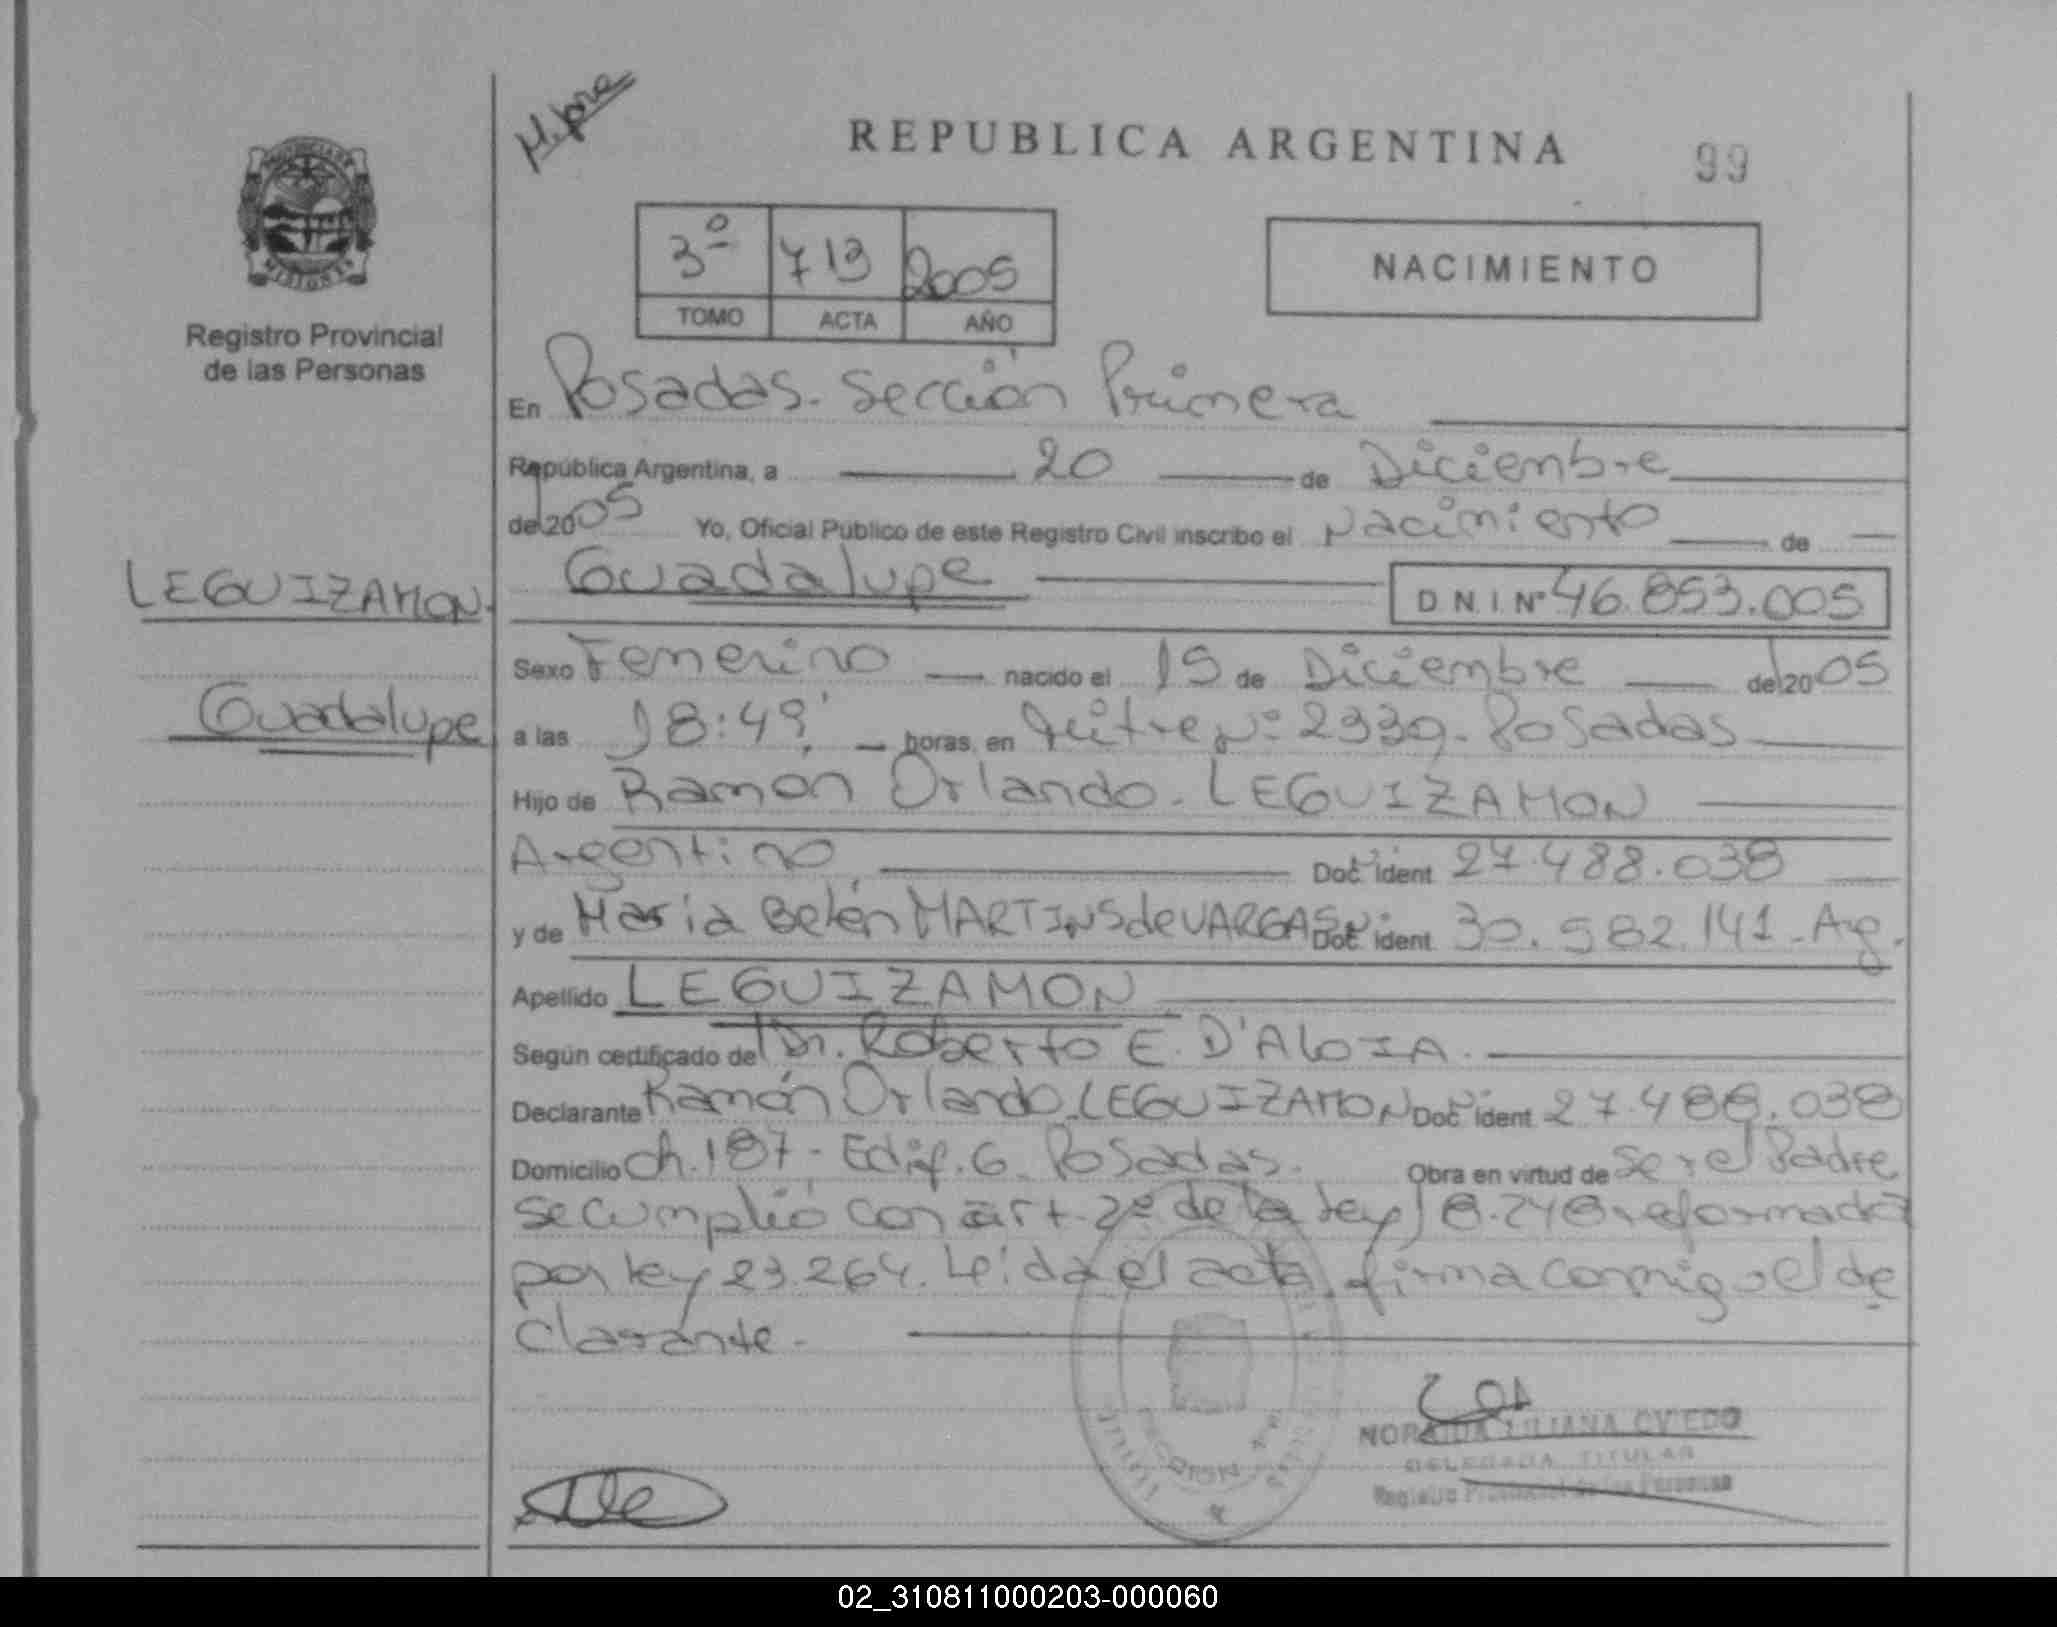 M. pre
REPUBLICA ARGENTINA 99
PROVINCIA DE MISIONES
3º 713 2005
TOMO ACTA AÑO
NACIMIENTO
Registro Provincial
de las Personas
En Posadas. Sección Primera
República Argentina, a 20 de Diciembre
del 2005 Yo, Oficial Público de este Registro Civil inscribo el Nacimiento de
LEGUIZAMON. Guadalupe D N I Nº 46.853.005
Sexo Femenino nacido el 15 de Diciembre del 2005
Guadalupe a las 18:49' horas, en Mitre Nº 2339. Posadas
Hijo de Ramón Orlando. LEGUIZAMON
Argentino, Doc. ident. 27.488.038
y de María Belén MARTINS de VARGAS Doc. ident. 30.582.141 - Arg.
Apellido LEGUIZAMON
Según certificado del Dr. Roberto E. D'ALOIA.
Declarante Ramón Orlando LEGUIZAMON Doc. ident. 27.488.038
Domicilio Ch. 187 - Edif. 6. Posadas. Obra en virtud de ser el Padre
se cumplió con art. 2º de la Ley 18.248 reformada
por ley 23.264. Leída el acta, firma conmigo el de
clarante.
NORAIDA LILIANA OVIEDO
DELEGADA TITULAR
Registro Provincial de las Personas
02_310811000203-000060